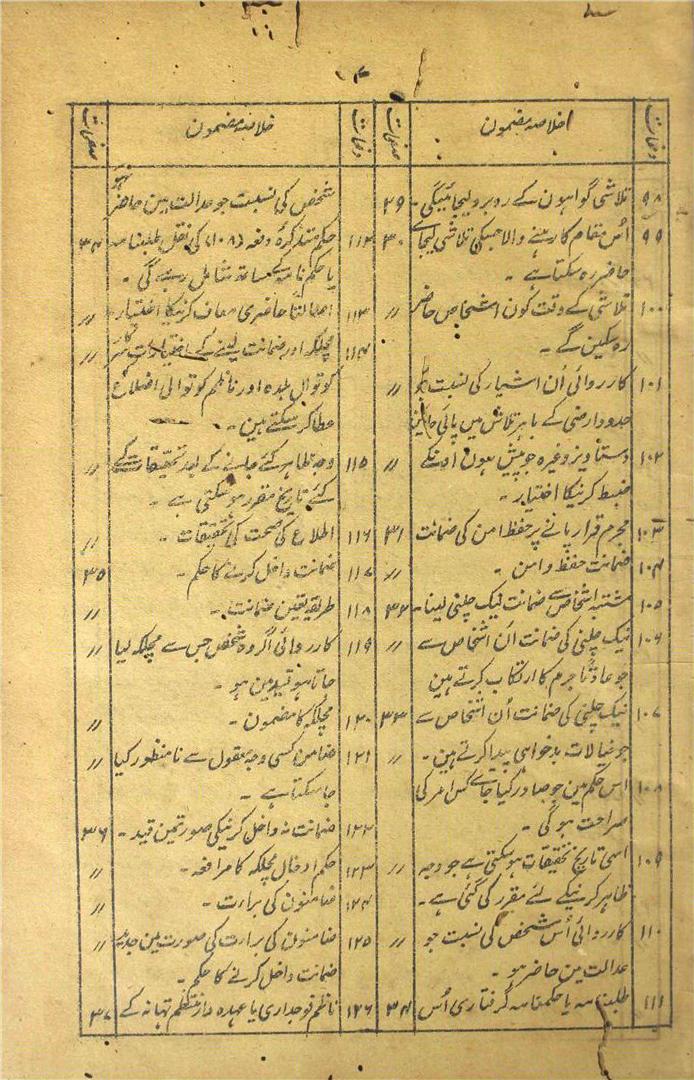 ۴
دفعات خلاصہ مضمون صفحات
۹۸ تلاشی گواہون کے روبرو لیجائیگی - ۲۹
۹۹ اُس مقام کا رہنے والا جسکی تلاشی لیجائے ۳۰
حاضر رہ سکتا ہے -
۱۰۰ تلاشی کے وقت کون اشخاص حاضر //
رہ سکین گے -
۱۰۱ کارروائی اُن اشیار کی نسبت جو //
حدود ارضی کے باہر تلاش میں پائی جائین
۱۰۲ دستاویز وغیرہ جو پیش ہون اونکے //
ضبط کرنیکا اختیار -
۱۰۳ مجرم قرار پانے پر حفظ امن کی ضمانت ۳۱
۱۰۴ ضمانت حفظ و امن - //
۱۰۵ مشتبہ اشخاص سے ضمانت نیک چلنی لینا - ۳۲
۱۰۶ نیک چلنی کی ضمانت اُن اشخاص سے //
جو عادتاً جرم کا ارتکاب کرتے ہین
۱۰۷ نیک چلنی کی ضمانت اُن اشخاص سے ۳۳
جو خیالات بدخواہی پیدا کرتے ہین - //
۱۰۸ اس حکم مین جو صادر کیا جائے کس امر کی
صراحت ہوگی -
۱۰۹ اسی تاریخ تحقیقات ہوسکتی ہے جو وجہ //
ظاہر کرنیکے لئے مقرر کی گئی ہے -
۱۱۰ کارروائی اُس شخص کی نسبت جو //
عدالت مین حاضر ہو -
۱۱۱ طلبنامہ یا حکمنامہ گرفتاری اُس ۳۴
دفعات خلاصہ مضمون صفحات
شخص کی نسبت جو عدالت مین حاضر نہو
۱۱۲ حکم متذکرۂ دفعہ (۱۰۸) کی نقل طلبنامہ ۳۴
یا حکمنامہ کے ساتھ شامل رہے گی -
۱۱۳ اصالتاً حاضری معاف کرنیکا اختیار - //
۱۱۴ مچلکہ اور ضمانت لینے کے اختیارات //
کوتوال بلدہ اور ناظم کوتوالی اضلاع
عطا کرسکتے ہین -
۱۱۵ وجہ ظاہر کئے جانے کے بعد تحقیقات کے //
لئے تاریخ مقرر ہوسکتی ہے -
۱۱۶ اطلاع کی صحت کی تحقیقات - //
۱۱۷ ضمانت داخل کرنے کا حکم - ۳۵
۱۱۸ طریقہ تعین ضمانت - //
۱۱۹ کارروائی اگر وہ شخص جس سے مچلکہ لیا //
جاتا ہو قید مین ہو -
۱۲۰ مچلکہ کا مضمون - //
۱۲۱ ضامن کسی وجہ معقول سے نامنظور کیا //
جاسکتا ہے -
۱۲۲ ضمانت نہ داخل کرنیکی صورتمین قید - ۳۶
۱۲۳ حکم ادخال مچلکہ کا مرافعہ - //
۱۲۴ ضامنون کی براءت - //
۱۲۵ ضامنون کی براءت کی صورت مین جدید //
ضمانت داخل کرنے کا حکم -
۱۲۶ ناظم فوجداری یا عہدہ دار منتظم تھانہ کے ۳۷